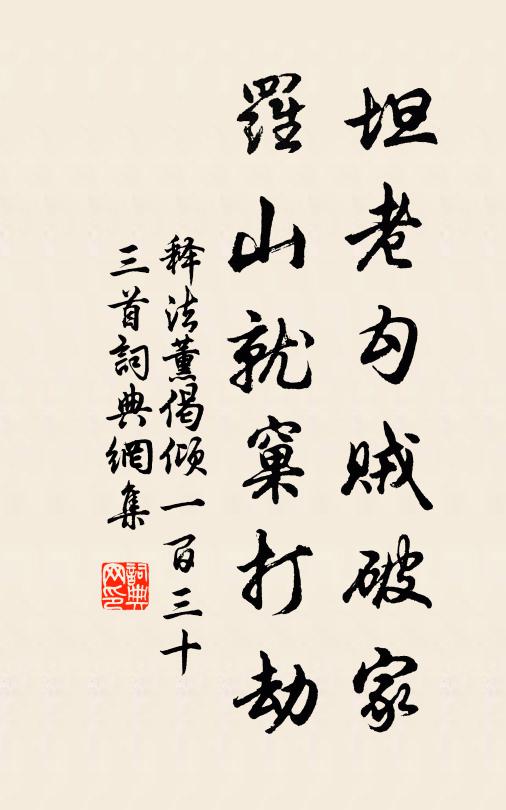 坦老勾贼破家
羅山就窠打劫
释法薰偈倾一百三十
三首詞典網集
詞典網印